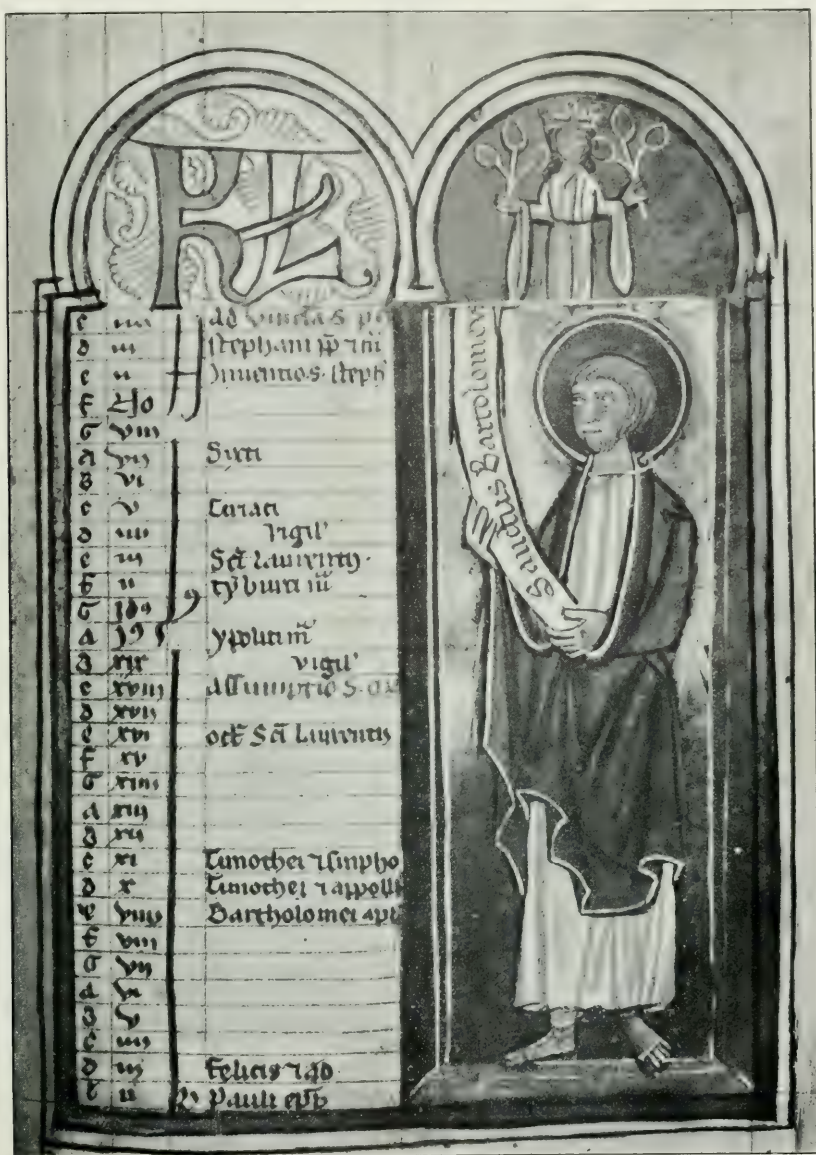 KL
c iiii ad vincla S. pe
d iii stephani pp
e ii Inventio s. steph
f
G viii
A vii Sixti
B vi
c v Ciriaci
d iiii vigil'
e iii Sci Laurentij.
f ii tyburci m̄
G
A ypoliti m̄
B xix vigil'
c xviii assumptio S.
d xvii
e xvi oct Sci Laurentij
f xv
G xiiii
A xiii
B xii
c xi Timothei ⁊ simpho
d x Timothei ⁊ appolli
e viiii Bartholomei apl
f viii
G vii
A vi
B v
c iiii
d iii Felicis ⁊ ad
e ii Pauli epi
Sanctus Bartolomeus